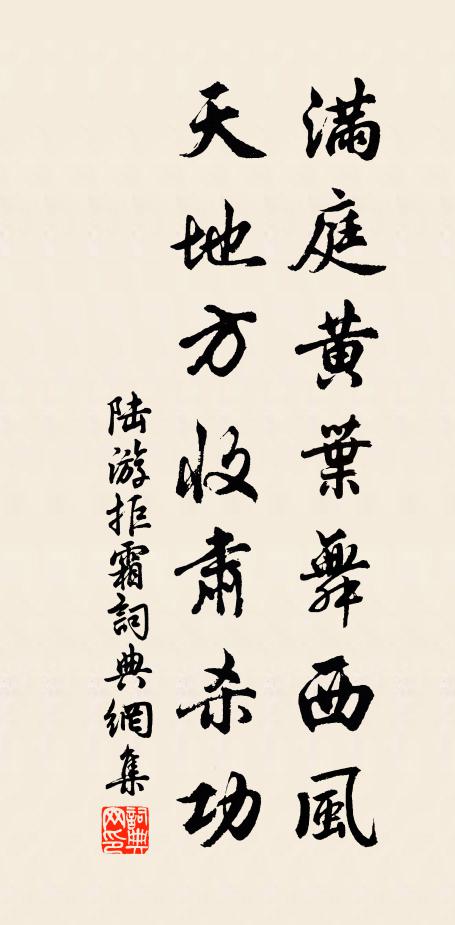 滿庭黃葉舞西風
天地方收肅杀功
陆游拒霜詞典網集
詞典网印